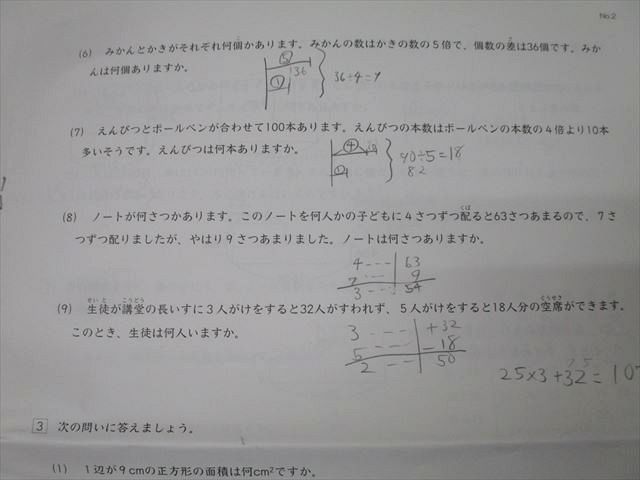 No.2
(6) みかんとかきがそれぞれ何個かあります。みかんの数はかきの数の5倍で、個数の差は36個です。みか
んは何個ありますか。
⑤
36
①
36÷4=9
(7) えんぴつとボールペンが合わせて100本あります。えんぴつの本数はボールペンの本数の4倍より10本
多いそうです。えんぴつは何本ありますか。
④
10
①
90÷5=18
82
(8) ノートが何さつかあります。このノートを何人かの子どもに4さつずつ配ると63さつあまるので、7さ
つずつ配りましたが、やはり9さつあまりました。ノートは何さつありますか。
4 --- 63
7 --- 9
3 --- 54
(9) 生徒が講堂の長いすに3人がけをすると32人がすわれず、5人がけをすると18人分の空席ができます。
このとき、生徒は何人いますか。
3 ---- +32
5 ---- -18
2 -- 50
25×3+32=107
3 次の問いに答えましょう。
(1) 1辺が9cmの正方形の面積は何cm²ですか。